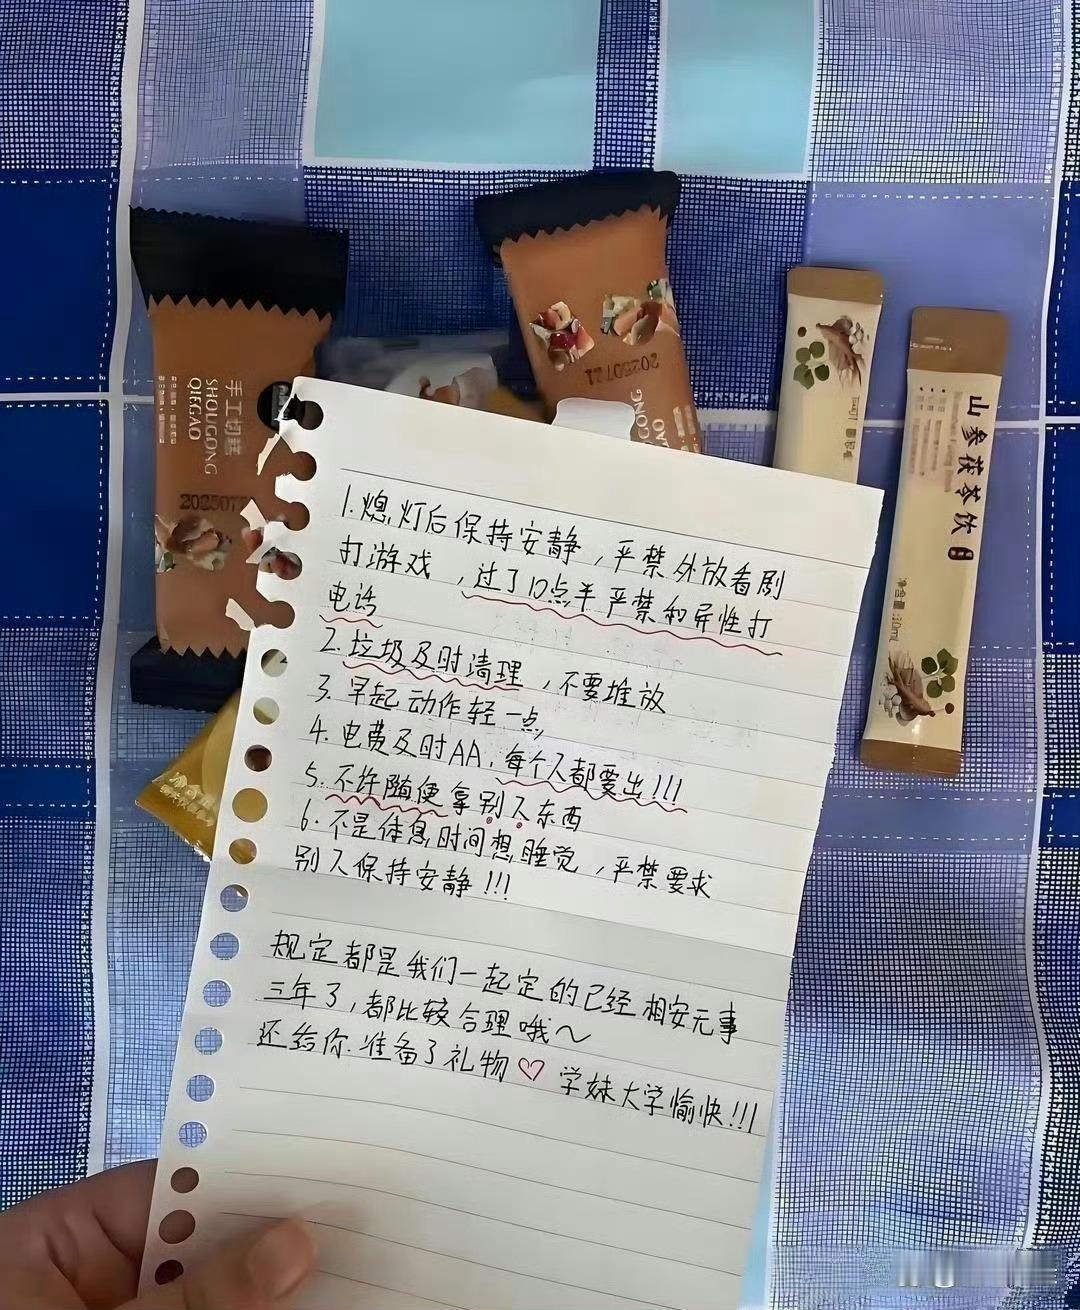 手工切糕
SHOUGONG
QIEGAO
20250721
GONG
GAO
山参茯苓饮
净含量:10mL
1.熄灯后保持安静,严禁外放看剧
打游戏,过了10点半严禁和异性打
电话
2.垃圾及时清理,不要堆放
3.早起动作轻一点
4.电费及时AA,每个人都要出!!!
5.不许随便拿别人东西
6.不是休息时间想睡觉,严禁要求
别人保持安静!!!
规定都是我们一起定的已经相安无事
三年了,都比较合理哦~
还给你准备了礼物♡ 学妹大学愉快!!!